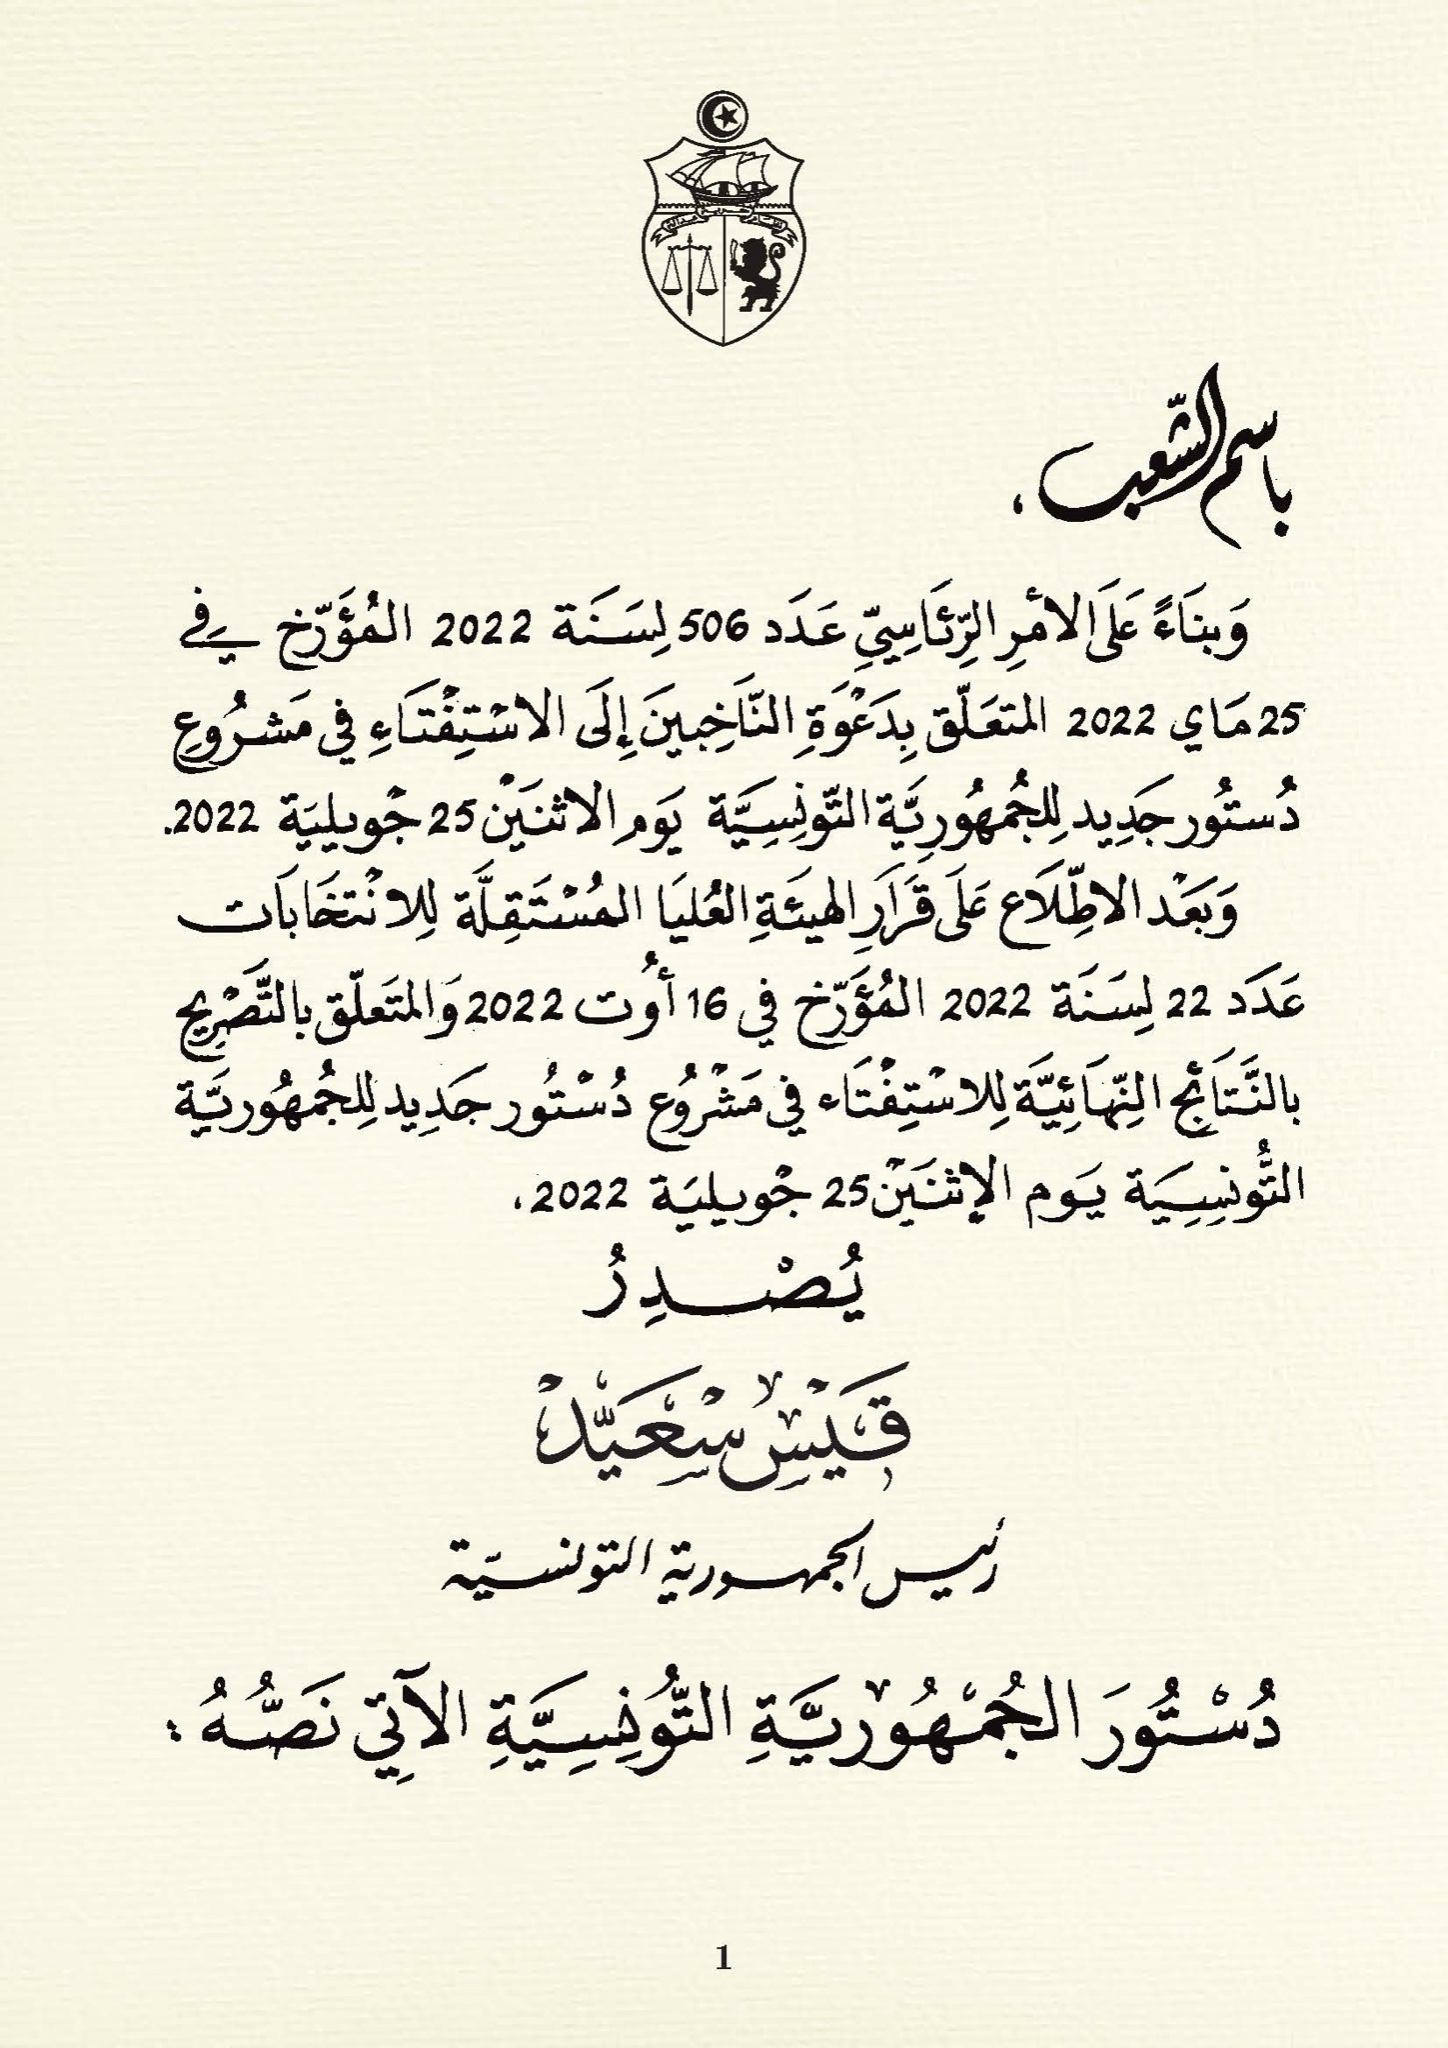 باسم الشّعب،
وَبِنَاءً عَلَى الأمْرِ الرِّئَاسِيِّ عَدَد 506 لِسَنَة 2022 المُؤَرّخ في
25 مَاي 2022 المتعَلّق بِدَعْوَةِ النَّاخِبينَ إِلَى الاسْتِفْتَاءِ فِي مَشرُوعِ
دُستُور جَدِيد لِلجُمهُورِيَّة التّونِسِيَّة يَوم الاثنَيْن 25 جْويليَة 2022.
وَبَعْد الاطِّلَاع عَلَى قَرَارِ الهيئَةِ العُليَا المُسْتَقِلَّة لِلانْتخَابَات
عَدَد 22 لِسَنَة 2022 المُؤَرّخ في 16 أُوت 2022 وَالمتعَلّق بالتَّصْرِيح
بالنَّتَائِج النِّهَائِيَّة لِلاسْتِفْتَاء في مَشْرُوع دُسْتُور جَدِيد لِلجُمهُوريَّة
التُّونسِيَة يَوم الإثنَيْن 25 جْويليَة 2022،
يُصْدِرُ
قَيْس سْعَيِّدْ
رئيس الجمهورية التونسيّة
دُسْتُورَ الجُمْهُوريَّةِ التُّونِسِيَّةِ الآتِي نَصُّهُ:
1